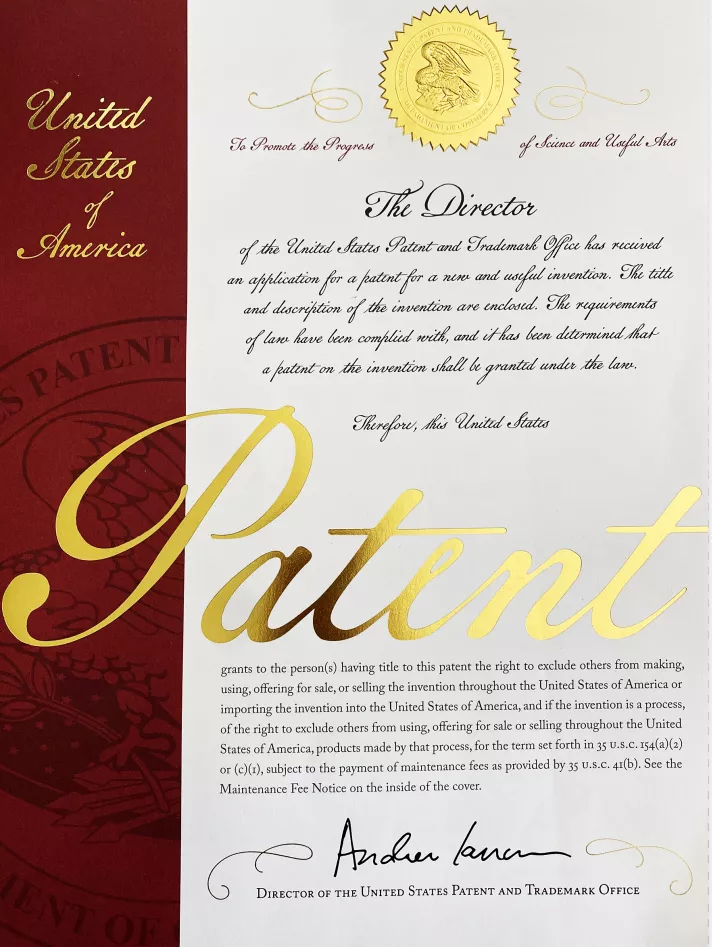 United
States
of
America
To Promote the Progress
of Science and Useful Arts
The Director
of the United States Patent and Trademark Office has received
an application for a patent for a new and useful invention. The title
and description of the invention are enclosed. The requirements
of law have been complied with, and it has been determined that
a patent on the invention shall be granted under the law.
Therefore, this United States
Patent
grants to the person(s) having title to this patent the right to exclude others from making,
using, offering for sale, or selling the invention throughout the United States of America or
importing the invention into the United States of America, and if the invention is a process,
of the right to exclude others from using, offering for sale or selling throughout the United
States of America, products made by that process, for the term set forth in 35 U.S.C. 154(a)(2)
or (c)(1), subject to the payment of maintenance fees as provided by 35 U.S.C. 41(b). See the
Maintenance Fee Notice on the inside of the cover.
DIRECTOR OF THE UNITED STATES PATENT AND TRADEMARK OFFICE
PATENT
DEPARTMENT OF COMMERCE